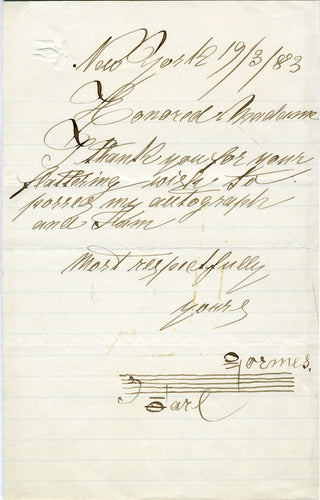 New York 19/3/83
Honored Madame
I thank you for your
flattering wish to
possess my autograph
and I am
most respectfully
yours
Carl Formes.